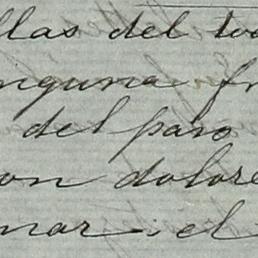 llas del to
nguna fr
del paso
on dolore
nar. el